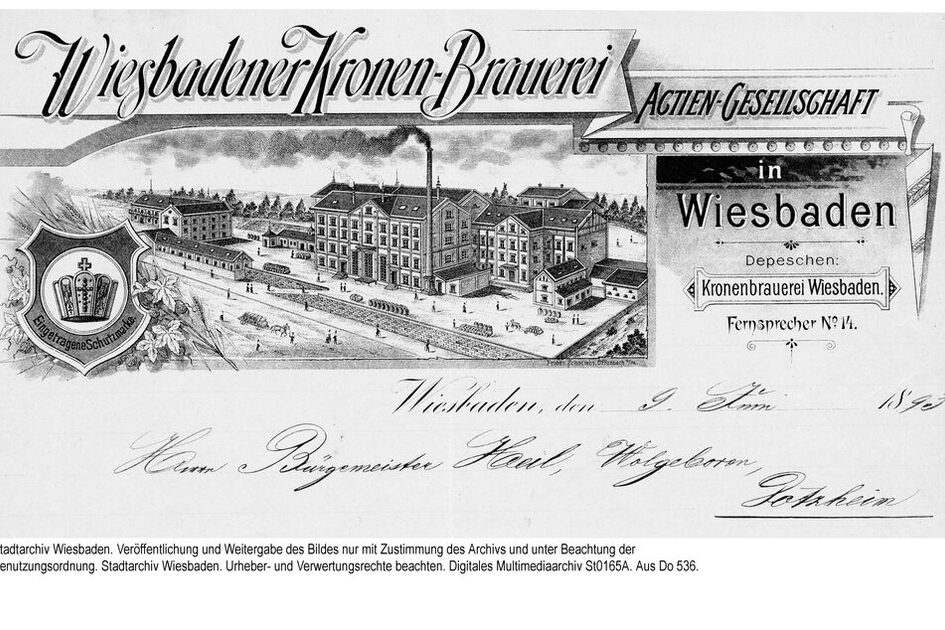 Wiesbadener Kronen-Brauerei
Actien-Gesellschaft
in
Wiesbaden
Depeschen:
Kronenbrauerei Wiesbaden.
Fernsprecher No 14.
Eingetragene Schutzmarke
Wiesbaden, den 9. Juni 1893
Herrn Bürgemeister Heil, Wolgeboren,
Dotzheim
tadtarchiv Wiesbaden. Veröffentlichung und Weitergabe des Bildes nur mit Zustimmung des Archivs und unter Beachtung der
enutzungsordnung. Stadtarchiv Wiesbaden. Urheber- und Verwertungsrechte beachten. Digitales Multimediaarchiv St0165A. Aus Do 536.